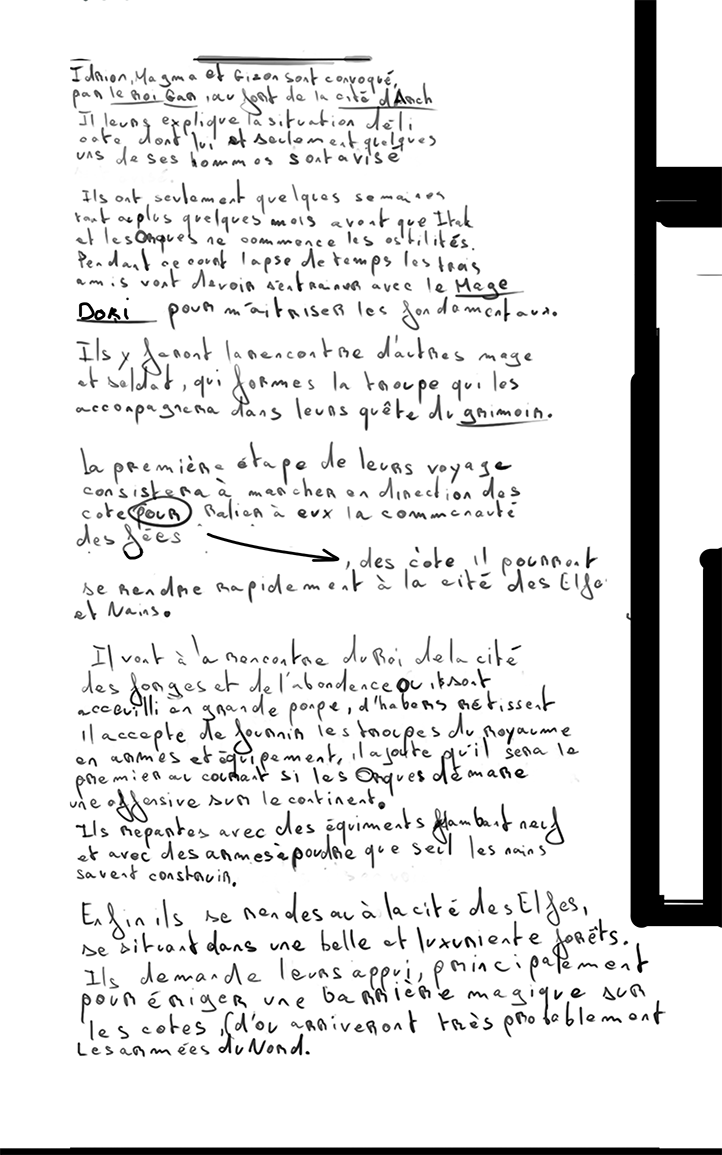 Idrion, Magma et Gizon sont convoqué
par le roi Gar, au fort de la cité d'Arch
Il leurs explique la situation déli
cate dont lui et seulement quelques
uns de ses hommes sont avisé
Ils ont seulement quelques semaines
tout au plus quelques mois avant que Itak
et les Orques ne commence les ostilités.
Pendant ce court lapse de temps les trois
amis vont devoir s'entrainer avec le Mage
Dori pour m'aitriser les fondamentaux.
Ils y feront la rencontre d'autres mage
et soldat, qui formes la troupe qui les
acconpagnera dans leurs quête du grimoir.
La première étape de leurs voyage
consistera à marcher en direction des
cote pour Ralier à eux la communauté
des fées
, des cote il pourront
se rendre rapidement à la cité des Elfe
et Nains.
Il vont à la rencontre du Roi de la cité
des forges et de l'abondence ou ils sont
acceuilli en grande ponpe, d'habord rétissent
il accepte de fournir les troupes du royaume
en armes et équipement, il ajoute qu'il sera le
premier au courant si les Orques démare
une offensive sur le continent.
Ils repartes avec des équiments flambant neuf
et avec des armes à poudre que seul les nains
savent construir.
Enfin ils se rendes au à la cité des Elfes,
se situant dans une belle et luxuriente forêts.
Ils demande leurs appui, principalement
pour ériger une barrière magique sur
les cotes, (d'ou arriveront très probablement
Les armées du Nord.